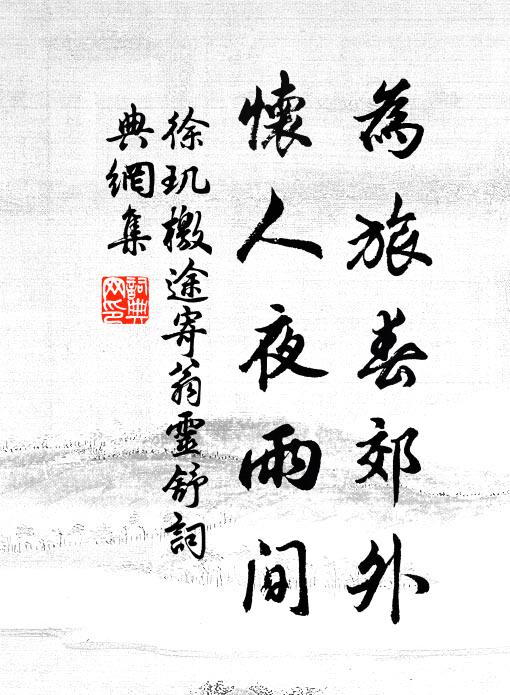 為旅春郊外
懷人夜雨間
徐玑檄途寄翁靈舒詞
典網集
詞典网印